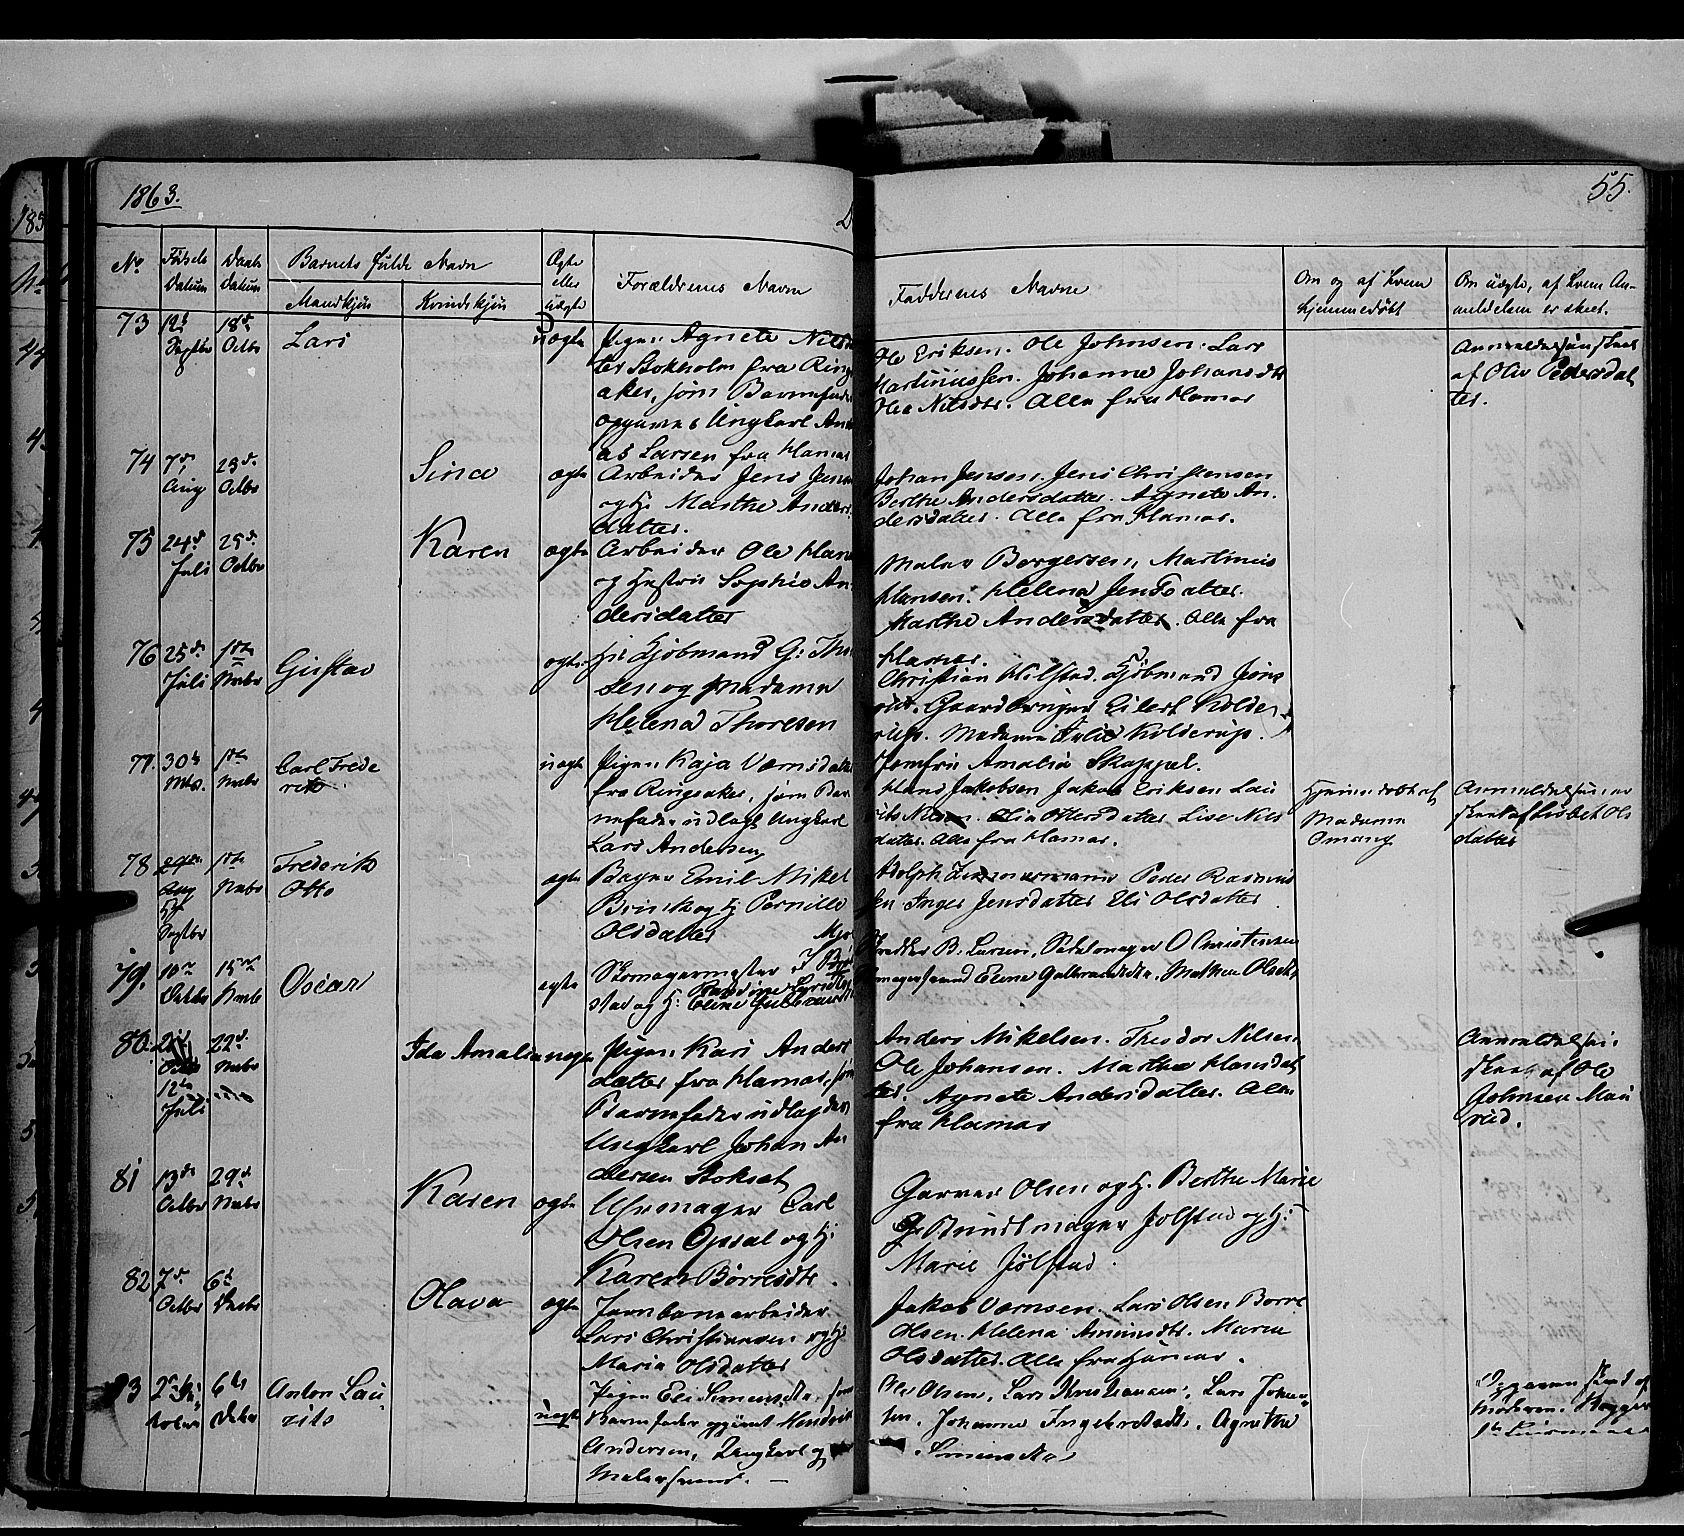 1863.
55.
No.
Fødsels
Datum
Daabs
Datum
Barnets fulde Navn
Mandkjøn
Kvindekjøn
Ægte
eller
uægte
Forældrenes Navne
Faddernes Navne
Om og af hvem
hjemmedøbt
Om uægte, af hvem An-
meldelsen er skeet.
73
12te
Septbr
18de
Octbr
Lars
uægte
Pigen Agnete Nilsd
ter Stokholm fra Ring
aker, som Barnefader
opgaves Ungkarl And
as Larsen fra Hamar
Ole Eriksen. Ole Johnsen. Lars
Martinussen. Johanne Johansdtr
Olea Nilsdtr. Alle fra Hamar
Anmeldelsen skeet
af Olia Pedersdat
ter.
74
7de
Aug
23de
Octbr
Sina
ægte
Arbeider Jens Jensen
og H. Marthe Anders
datter.
Johan Jensen. Jens Christensen
Berthe Andersdatter. Agnete An-
dersdatter. Alle fra Hamar.
75
24de
Juli
25de
Octbr
Karen
ægte
Arbeider Ole Hans
og Hustru Sophie An
dersdatter
Maler Borgersen, Martinus
Hansen. Helena Jensdatter.
Marthe Andersdatter. Alle fra
Hamar.
76
25de
Juli
1ste
Novbr
Gustav
ægte
Hr. Kjøbmand G. Tho
sen og Madame
Helena Thoresen
Christian Hilstad. Kjøbmand Jøns
Gaardbruger Eilert Kolde-
rup. Madame Julie Kolderup.
Jomfru Amalia Skappel.
77.
30te
Mts.
1ste
Novbr
Carl Frede
rik
uægte
Pigen Kaja Værnsdatter
fra Ringsaker, som Bar
nefader udlagt Ungkarl
Lars Andersen
Hans Jakobsen Jakob Eriksen Lau
rits Nilsen. Olia Ottersdatter Lise Nils
datter. Alle fra Hamar.
Hjemmedøbt af
Madame
Omang
Anmeldelsen er
skeet af Lisbet Ols
datter
78
29de
Aug
5te
Septbr
1ste
Novbr
Frederik
Otto
ægte
Bager Emil Mikel
Brinck og H. Pernille
Olsdatter
Adolph Zimmermann Peder Rasmus
sen Inger Jensdatter Eli Olsdatter
79.
10de
Octbr
15de
Novb
Oscar
ægte
Skomagermester J
stad og H:
B. Larsen, Sadelmager O Christensen
Eline Gulbrandsdtr, Mathea Olsdtr
80.
12te
Juli
22de
Novbr
Ida Amalia
uægte
Pigen Kari Anders
datter fra Hamar, som
Barnefader udlagdes
Ungkarl Johan An
dersen Stokset
Anders Mikelsen. Theodor Nilsen.
Ole Johansen. Marthe Hansdat
ter. Agnete Andersdatter. Alle
fra Hamar
Anmeldelsen
skeet af Ole
Johnsen Mau
rud.
81
13de
Octbr
29de
Novbr
Karen
ægte
Uhrmager Carl
Olsen Opsal og H:
Karen Børresdtr.
Garver Olsen og H. Berthe Marie
Bundtmager Jølstad og H:
Marie Jølstad.
82
7de
Octbr
6te
Decbr
Olava
ægte
Jernbanearbeider
Lars Christiansen og H:
Maria Olsdatter
Jakob Værnsen. Lars Olsen Borre
Olsen. Helena Amundsdtr. Maria
Olsdatter. Alle fra Hamar.
83
2den Oc-
tober
6te
Decbr
Anton Lau-
rits
uægte
Pigen Eli Simensdtr, som
Barnefader opgivet Hendrik
Andersen, Ungkarl og
Malersvend. —
Ole Olsen, Lars Kristiansen, Lars Johan-
sen, Johanne Ingebretsdtr, Agnethe
Simensdtr
Opgaven skeet af
Moderen.